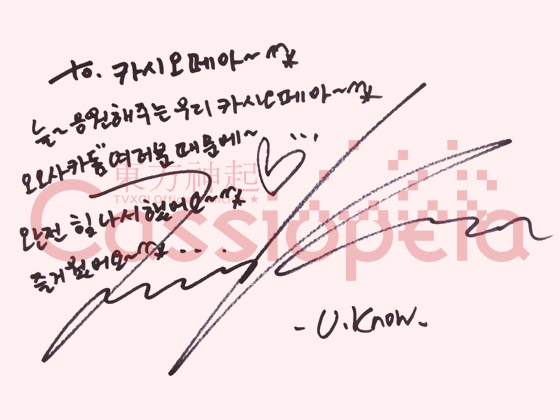 to. 카시오페아~^^*
늘~ 응원해주는 우리 카시오페아~^^*
오오사카돔 여러분 때문에~ ...
東方神起
완전 힘나서했어요~^^*
Cassiopeia
즐거웠어요~^^* ...
- U.Know -